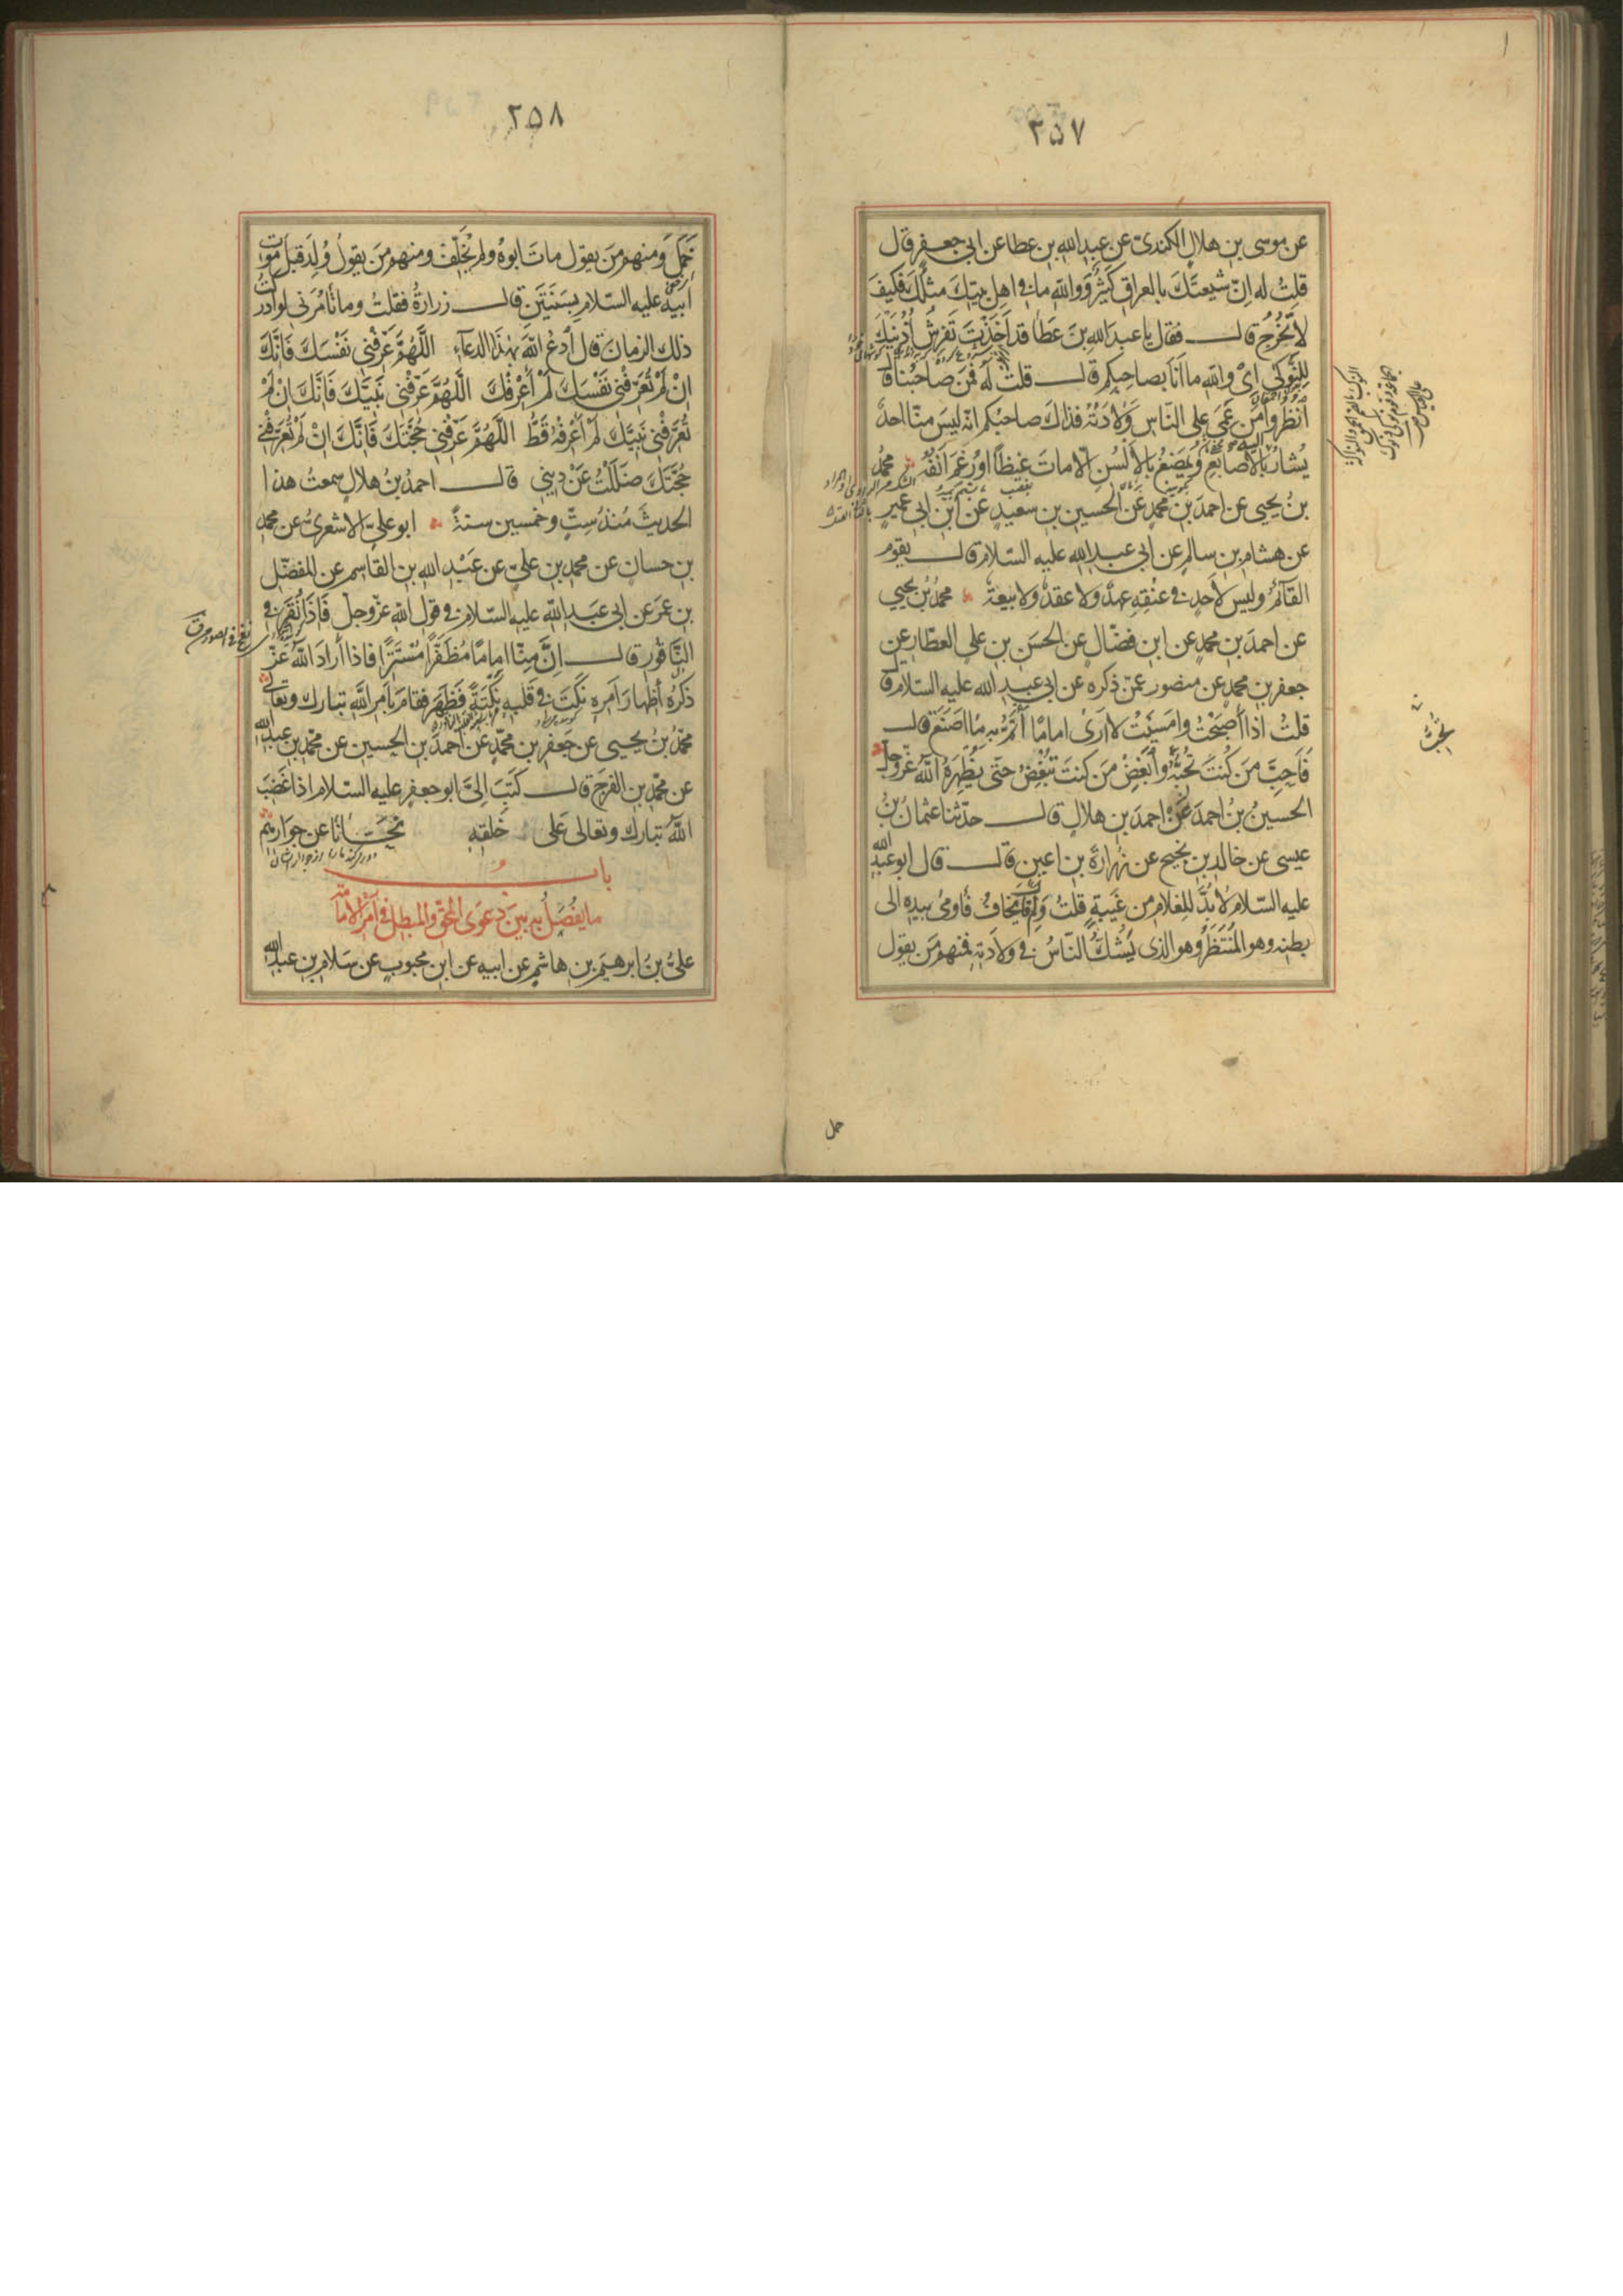 ٢٥٧
عن موسى بن هلال الكندى عن عبد الله بن عطا عن ابى جعفر قال
قلت له اِنّ شيعتَكَ بالعراقِ كَثيرٌ ووالله ما فى اهلِ بيتِكَ مثلُكَ فكيفَ
لا تَخْرُجُ قال فقال يا عبدَ اللهِ بنَ عَطا قد اَخَذْتَ تَفرِشُ اُذُنَيْكَ
لِلنَّوكى اى والله ما اَنَا بصاحِبِكم قال قلت له فمَن صاحبُنا قال
انظروا مَن عَمِىَ على النّاس وِلادَتُه فذاك صاحبُكم انّه ليسَ منّا احدٌ
يُشارُ بالاَصابِعِ ويُمضَغُ بالاَلسُنِ الّا ماتَ غيظًا او رَغِمَ اَنفُه محمّدُ
بنُ يحيى عن احمدَ بنِ محمّدٍ عن الحسين بن سعيدٍ عن ابن ابى عميرٍ
عن هشام بن سالم عن ابى عبد الله عليه السّلام قال يقوم
القآئمُ وليس لاَحدٍ فى عنُقِهِ عهدٌ ولا عقدٌ ولا بيعةٌ محمّدُ بنُ يحيى
عن احمدَ بنِ محمدٍ عن ابن فضّال عن الحسن بن على العطّار عن
جعفر بن محمدٍ عن منصور عمّن ذكره عن ابى عبد الله عليه السلام قال
قلتُ اذا اَصبَحْتُ واَمسَيْتُ لا اَرىٰ امامًا اَئْتَمُّ به ما اَصنَع قال
فَاَحِبَّ مَن كنتَ تُحِبُّ وأَبْغِضْ مَن كنتَ تُبْغِضُ حَتّى يُظهِرَهُ اللّه عزّوجلّ
الحسينُ بنُ احمدَ عن احمدَ بن هلالٍ قال حدّثنا عثمانُ بنُ
عيسى عن خالد بن نجيح عن زرارة بن اعين قال قال ابو عبد الله
عليه السّلام لا بُدَّ لِلغلام من غَيبةٍ قلتُ ولِمَ قال يَخافُ فاَومى بيده الى
بطنه وهو المُنتَظَرُ وهو الذى يَشُكُّ النّاسُ فى ولادَتِه فمنهم مَن يقول
حمل
٢٥٨
حَمْلٌ ومنهم مَن يقول ماتَ ابوهُ ولم يُخَلِّف ومنهم مَن يقولُ وُلِدَ قبلَ موت
ابيه عليه السّلام بِسَنَتَينِ قال زرارةُ فقلتُ وما تأمُرُنى لو ادركتُ
ذلك الزمانَ قال أدعُ اللّهَ بهذا الدعآءِ اللّهُمَّ عَرِّفْنِى نَفْسَكَ فَاِنَّكَ
اِنْ لَمْ تُعَرِّفْنِى نَفْسَكَ لَمْ أعْرِفْكَ اللّهُمَّ عَرِّفْنِى نَبِيَّكَ فَاِنَّكَ اِنْ لَمْ
تُعَرِّفْنِى نَبِيَّكَ لَمْ اَعْرِفْهُ قَطُّ اللّهُمَّ عَرِّفْنِى حُجَّتَكَ فَاِنَّكَ اِنْ لَمْ تُعَرِّفْنِى
حُجَّتَكَ ضَلَلْتُ عَنْ دِينِى قال احمدُ بنُ هلالٍ سمعتُ هذا
الحديثَ مُنذُ سِتٍّ وخمسين سنةً ابو علىّ الاشعرىُّ عن محمد
بن حسان عن محمد بن علىّ عن عَبْد الله بن القاسم عن المفضّل
بن عمر عن ابى عبد اللّه عليه السّلام فى قول اللّه عزّوجلّ فَاِذَا نُقِرَ فى
النَّاقُورِ قال اِنَّ مِنّا اِمامًا مُظَفَّرًا مُسْتَتِرًا فاذا أرادَ اللّه عَزّ
ذكرُه اظهارَ اَمرِهِ نكَتَ فى قلبه نُكتَةً فَظَهَرَ فقامَ بأمرِ اللّهِ تبارك وتعالى
محمّدُ بنُ يحيى عن جعفر بن محمّدٍ عن احمدَ بن الحسين عن محمّد بن عبد الله
عن محمّد بن الفرج قال كَتَبَ اِلىَّ ابو جعفر عليه السّلام اذا غَضِبَ
اللّه تبارك وتعالى عَلى خَلقِهِ نَحّانا عن جِوارِهِم
دور ميكند ما را از جوار ايشان
باب
ما يُفصَلُ به بينَ دعوَى المُحقّ والمبطل فى اَمرِ الامامة
علىُّ بنُ ابرهيمَ بن هاشمٍ عن ابيه عن ابن محبوبٍ عن سَلام بن عبد الله